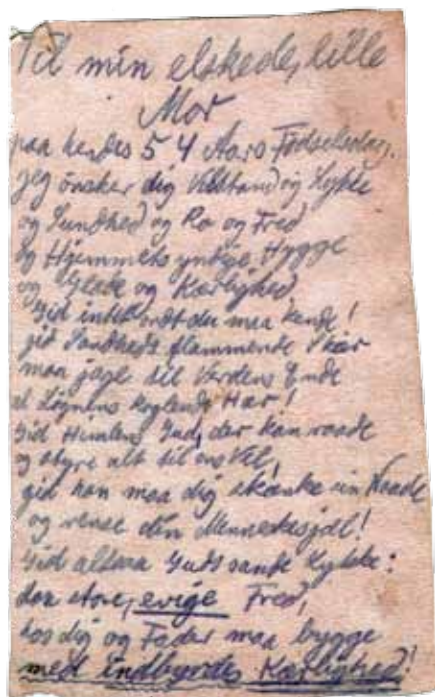 Til min elskede, lille
Mor
paa hendes 54 Aars Fødselsdag.
Jeg ønsker dig Velstand og Lykke
og Sundhed og Ro og Fred
og Hjemmets yndige Hygge
og Glæde og Kærlighed
Gid intet ondt du maa kende!
gid Sandheds flammende Skær
maa jage til Verdens Ende
al Løgnens koglende Hær!
Gid Himlens Gud, der kan raade
og styre alt til ens Vel,
gid han maa dig skænke sin Naade
og rense din Menneskesjæl!
Gid altsaa Guds sande Lykke:
den store, evige Fred,
hos dig og Fader maa bygge
med indbyrdes Kærlighed!